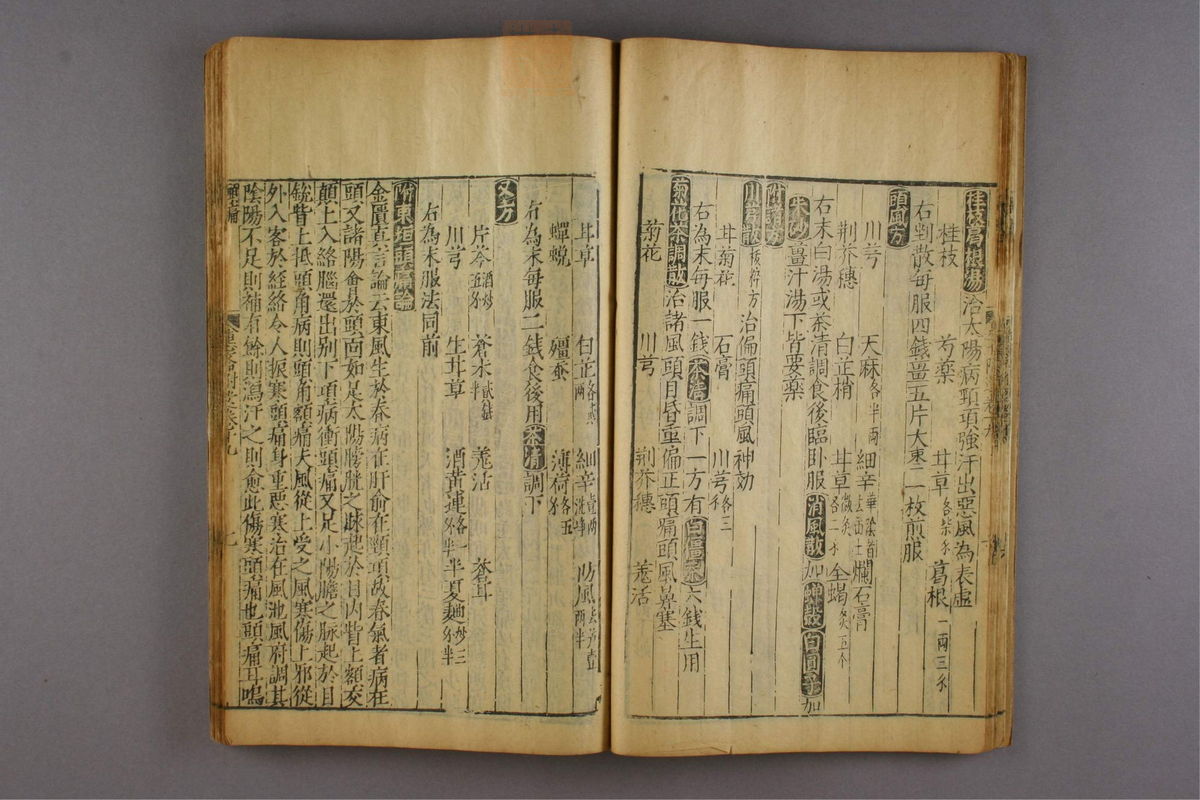 桂枝葛根湯 治太陽病頸項強汗出惡風為表虛
桂枝 芍藥 甘草 葛根
右剉散每服四錢薑五片大棗二枚煎服
頭風方
川芎 天麻各半兩 細辛 石膏
荆芥穗 白芷梢 甘草 全蝎
右末白湯或茶清調食後臨卧服消風散加蟬殼白
朱砂薑汁湯下皆要藥
附諸方
川芎散 治偏頭痛頭風神効
甘菊花 石膏 川芎各三
右為末每服一錢茶清調下一方有白殭蚕六錢生用
菊花茶調散治諸風頭目昏重偏正頭痛頭風鼻塞
菊花 川芎 荆芥穗 羗活
甘草 白芷 細辛 防風
蟬蛻 殭蚕 薄荷各五
右為末每服二錢食後用茶清調下
又方
片芩酒炒 蒼朮 羗活 蒼耳
川芎 生甘草 酒黃連 半夏麯炒三
右為末服法同前
附東垣頭痛論
金匱真言論云東風生於春病在肝俞在頸項故春氣者病在
頭又諸陽會於頭面如足太陽膀胱之脉起於目內眥上額交
顛上入絡腦還出别下項病衝頭痛又足少陽膽之脉起於目
銳眥上抵頭角病則頭角額痛夫風從上受之風寒傷上邪從
外入客於經絡令人振寒頭痛身重惡寒治在風池風府調其
陰陽不足則補有餘則瀉汗之則愈此傷寒頭痛也頭痛耳鳴